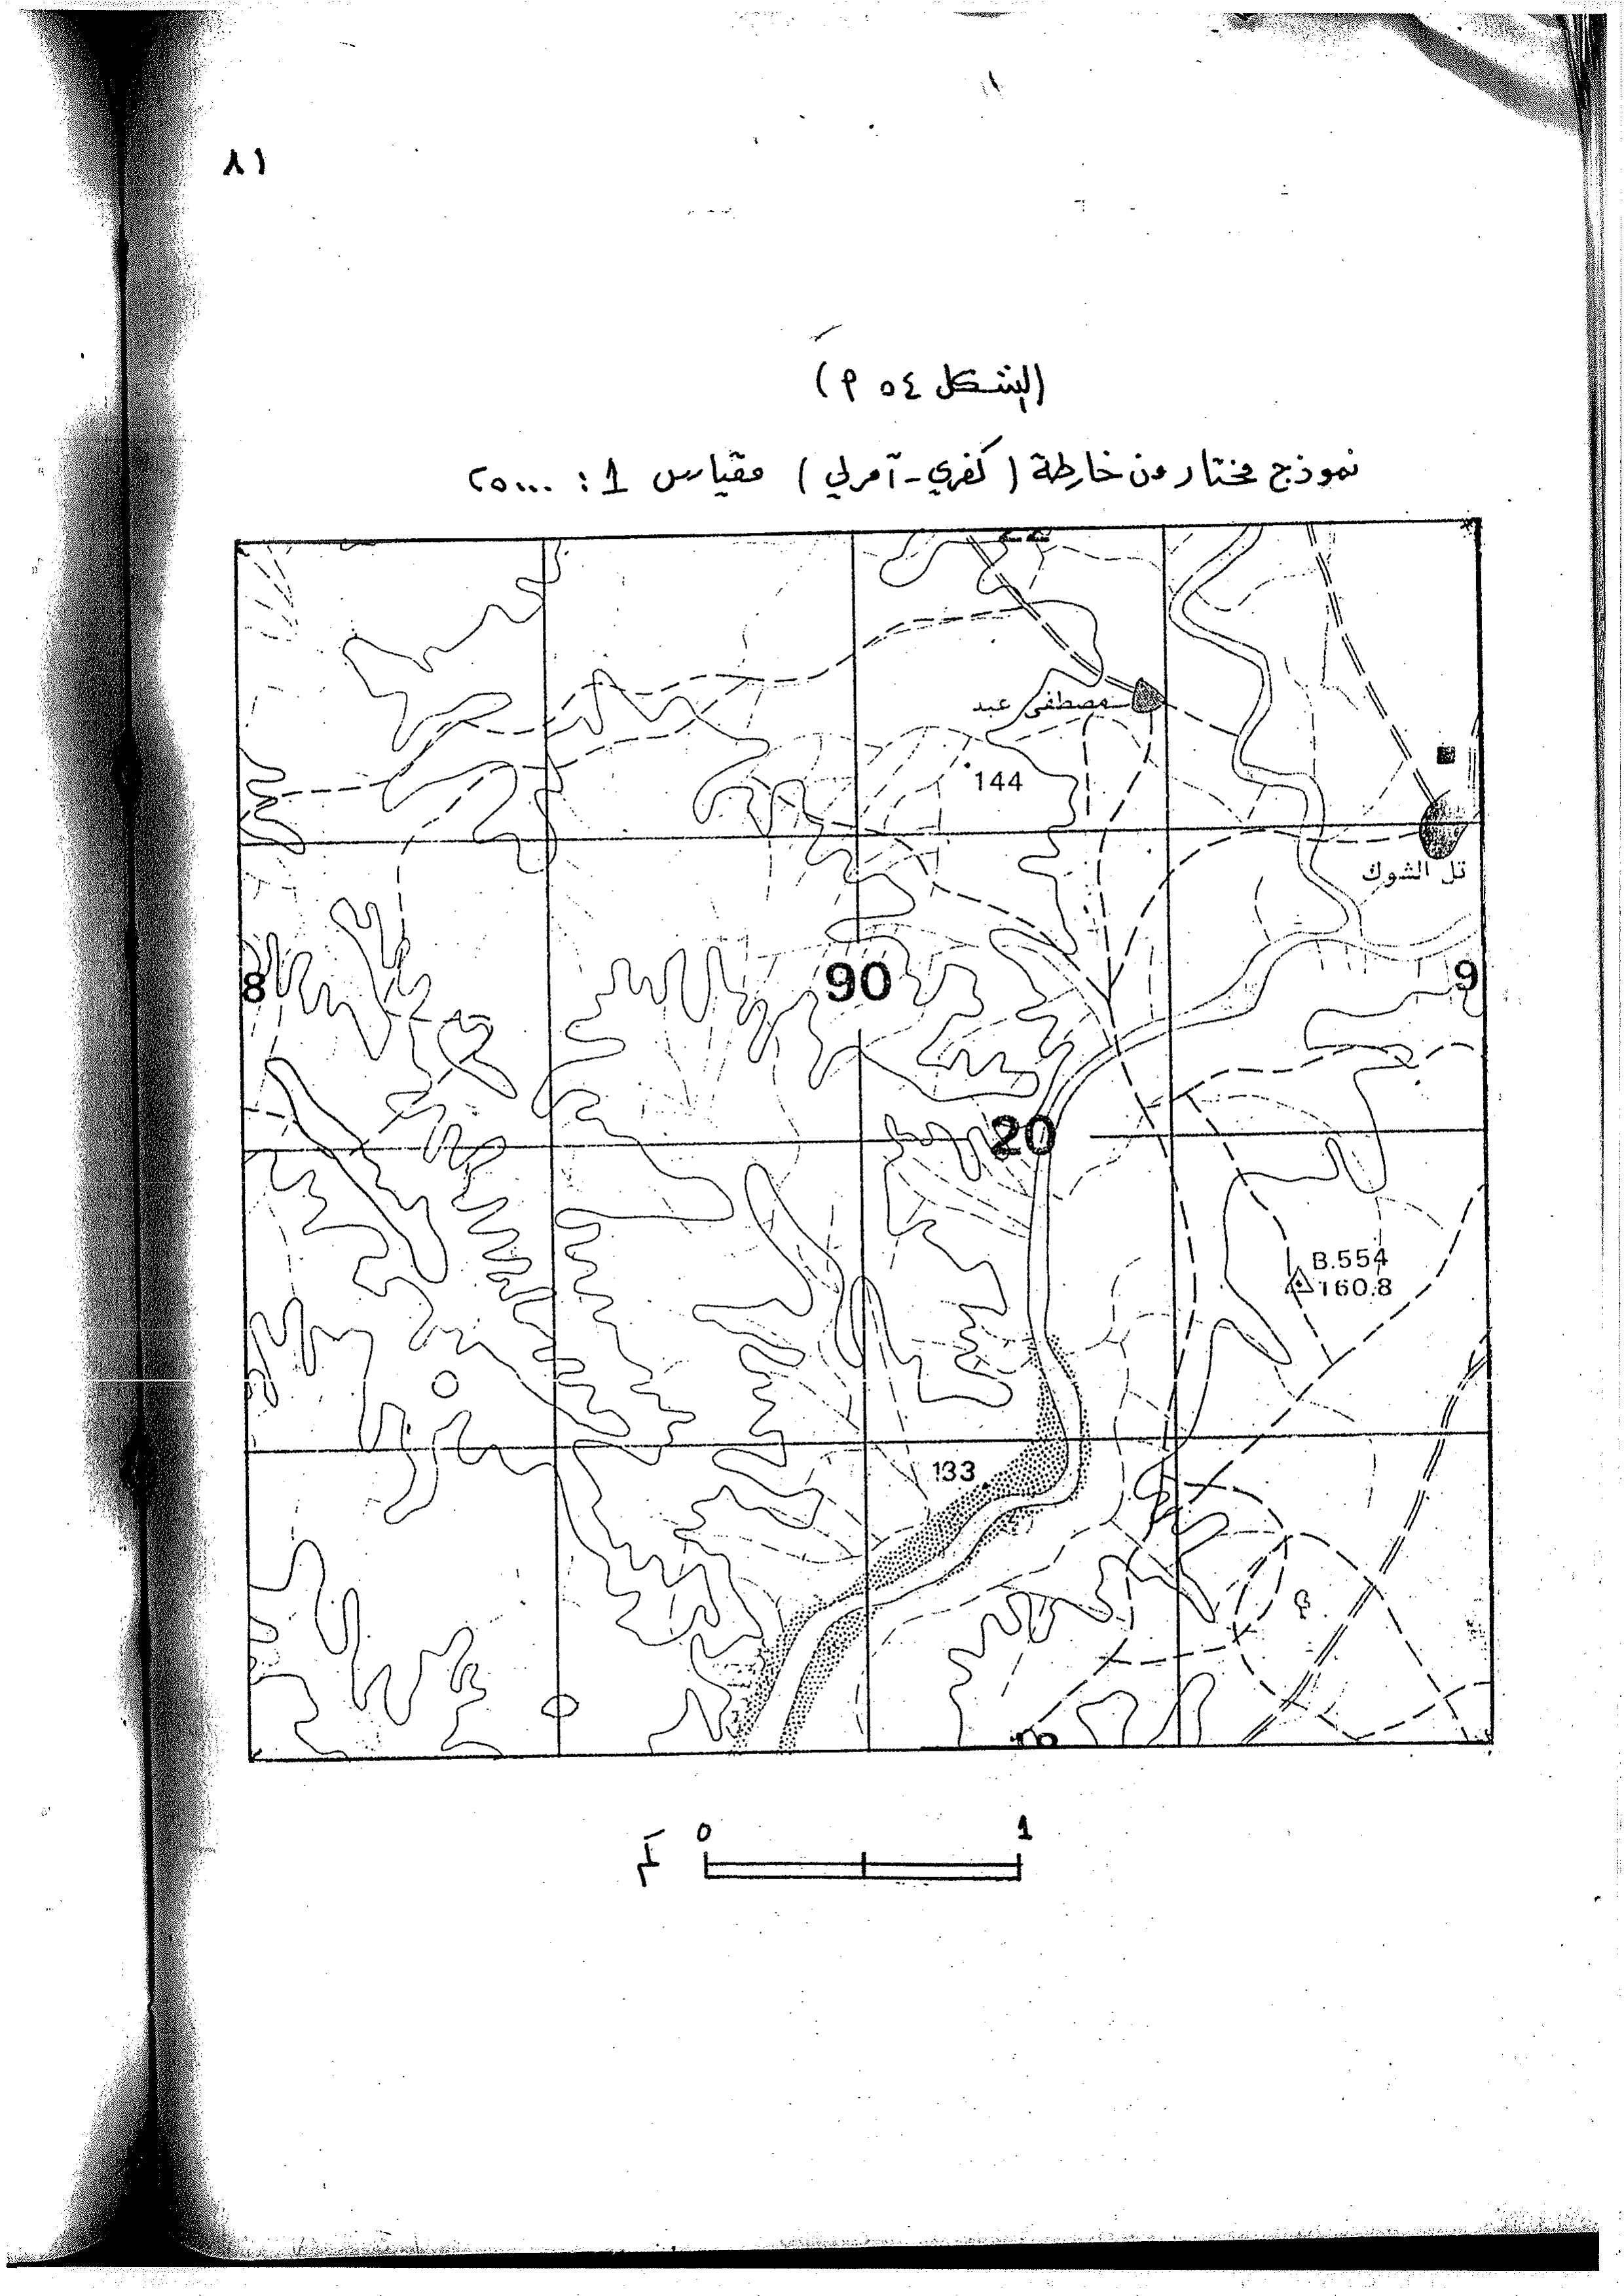 ٨١
(الشكل ٥٤ م)
نموذج مختار من خارطة (كفري - آمرلي) مقياس 1 : ٢٥٠٠٠
مصطفى عبد
144
تل الشوك
8
90
9
20
B.554
160.8
133
كم
0
1